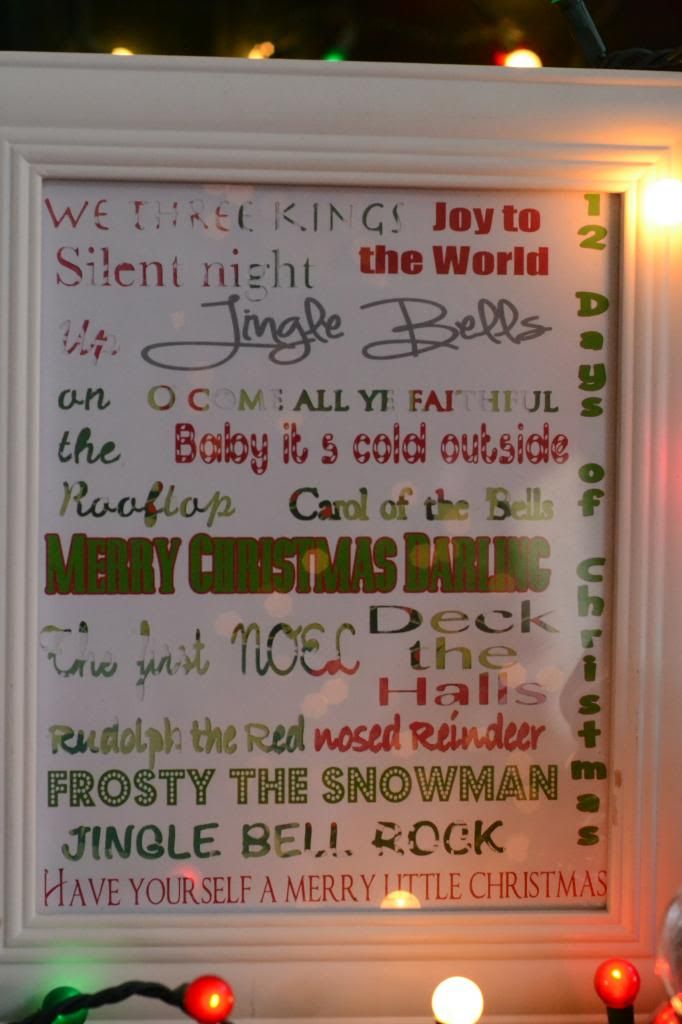 WE THREE KINGS
Joy to
the World
Silent night
Jingle Bells
Up
on
the
Rooftop
O COME ALL YE FAITHFUL
Baby it s cold outside
Carol of the Bells
MERRY CHRISTMAS DARLING
The first NOEL
Deck
the
Halls
Rudolph the Red nosed Reindeer
FROSTY THE SNOWMAN
JINGLE BELL ROCK
HAVE YOURSELF A MERRY LITTLE CHRISTMAS
12 Days of Christmas